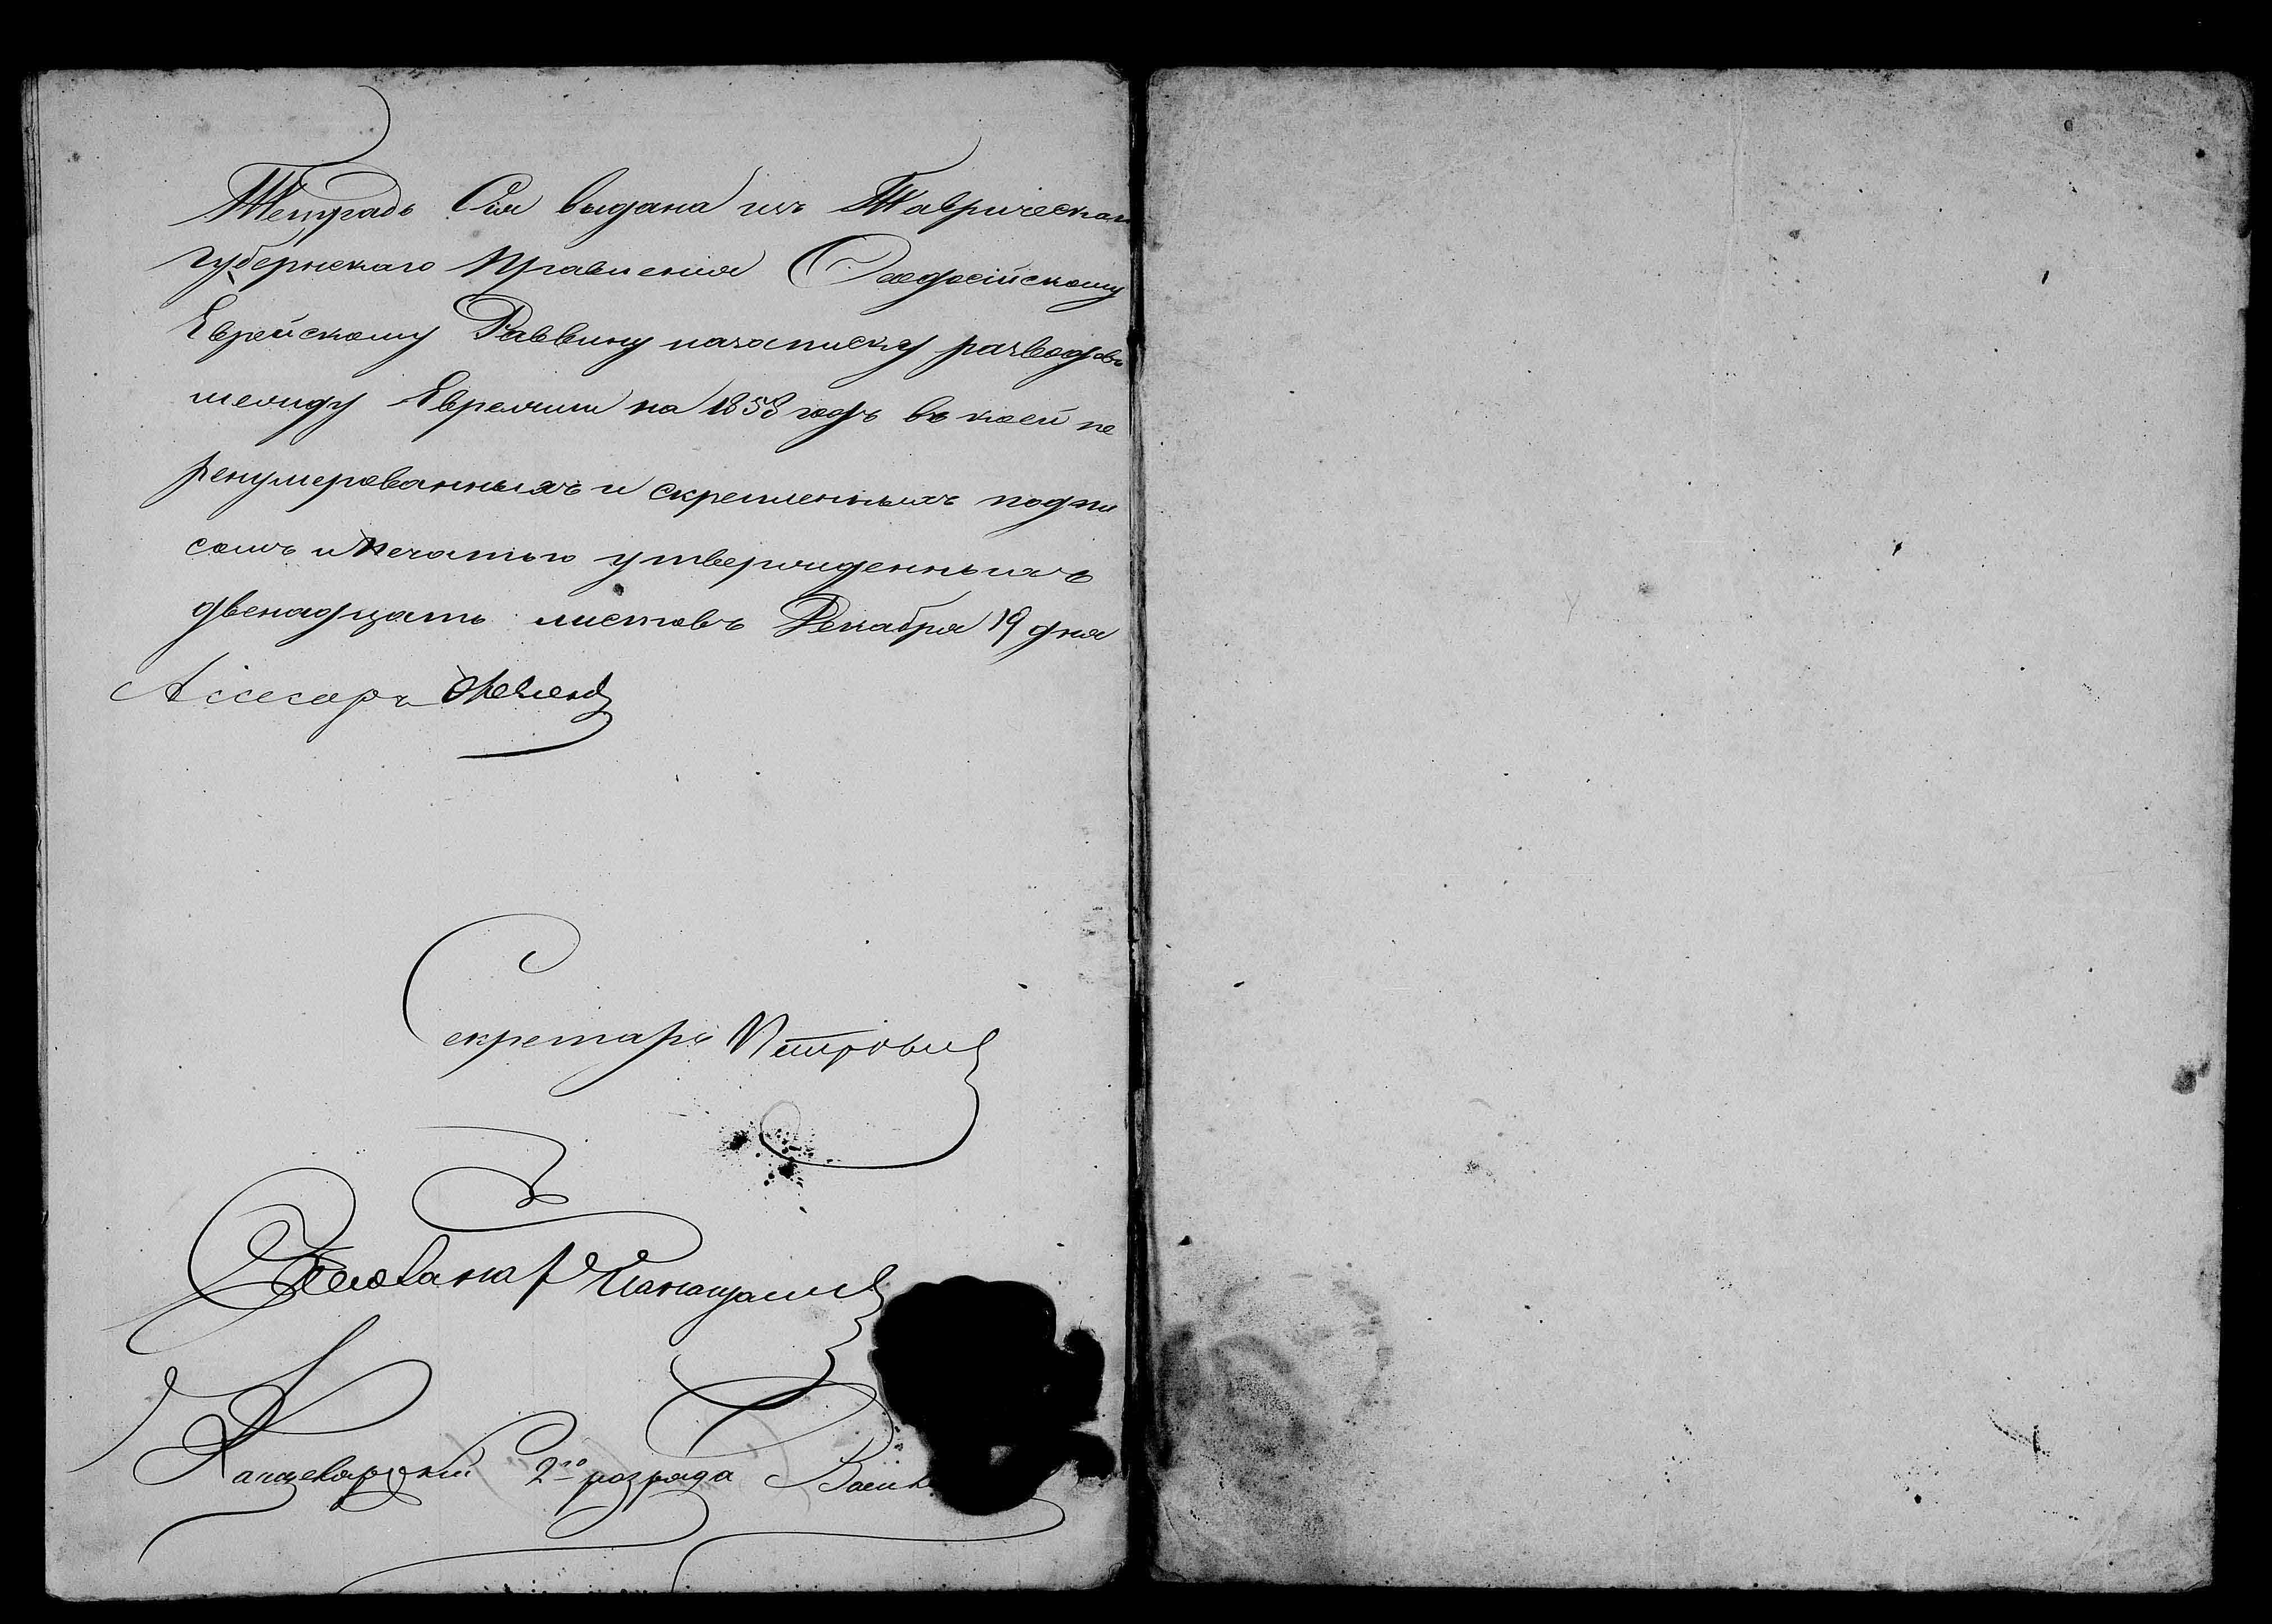 Тетрадь Сія выдана изъ Таврическаго
губернскаго Правленія Ѳеодосійскому
Еврейскому Раввину на записку разводовъ
между Евреями на 1858 годъ въ коей пе
ренумерованныхъ и скрепленныхъ подпи
сомъ и печатью утвержденныхъ
двенадцать листовъ Декабря 19 дня
Ассесоръ
Секретарь Петровы
Канцелярскій 2го розряда